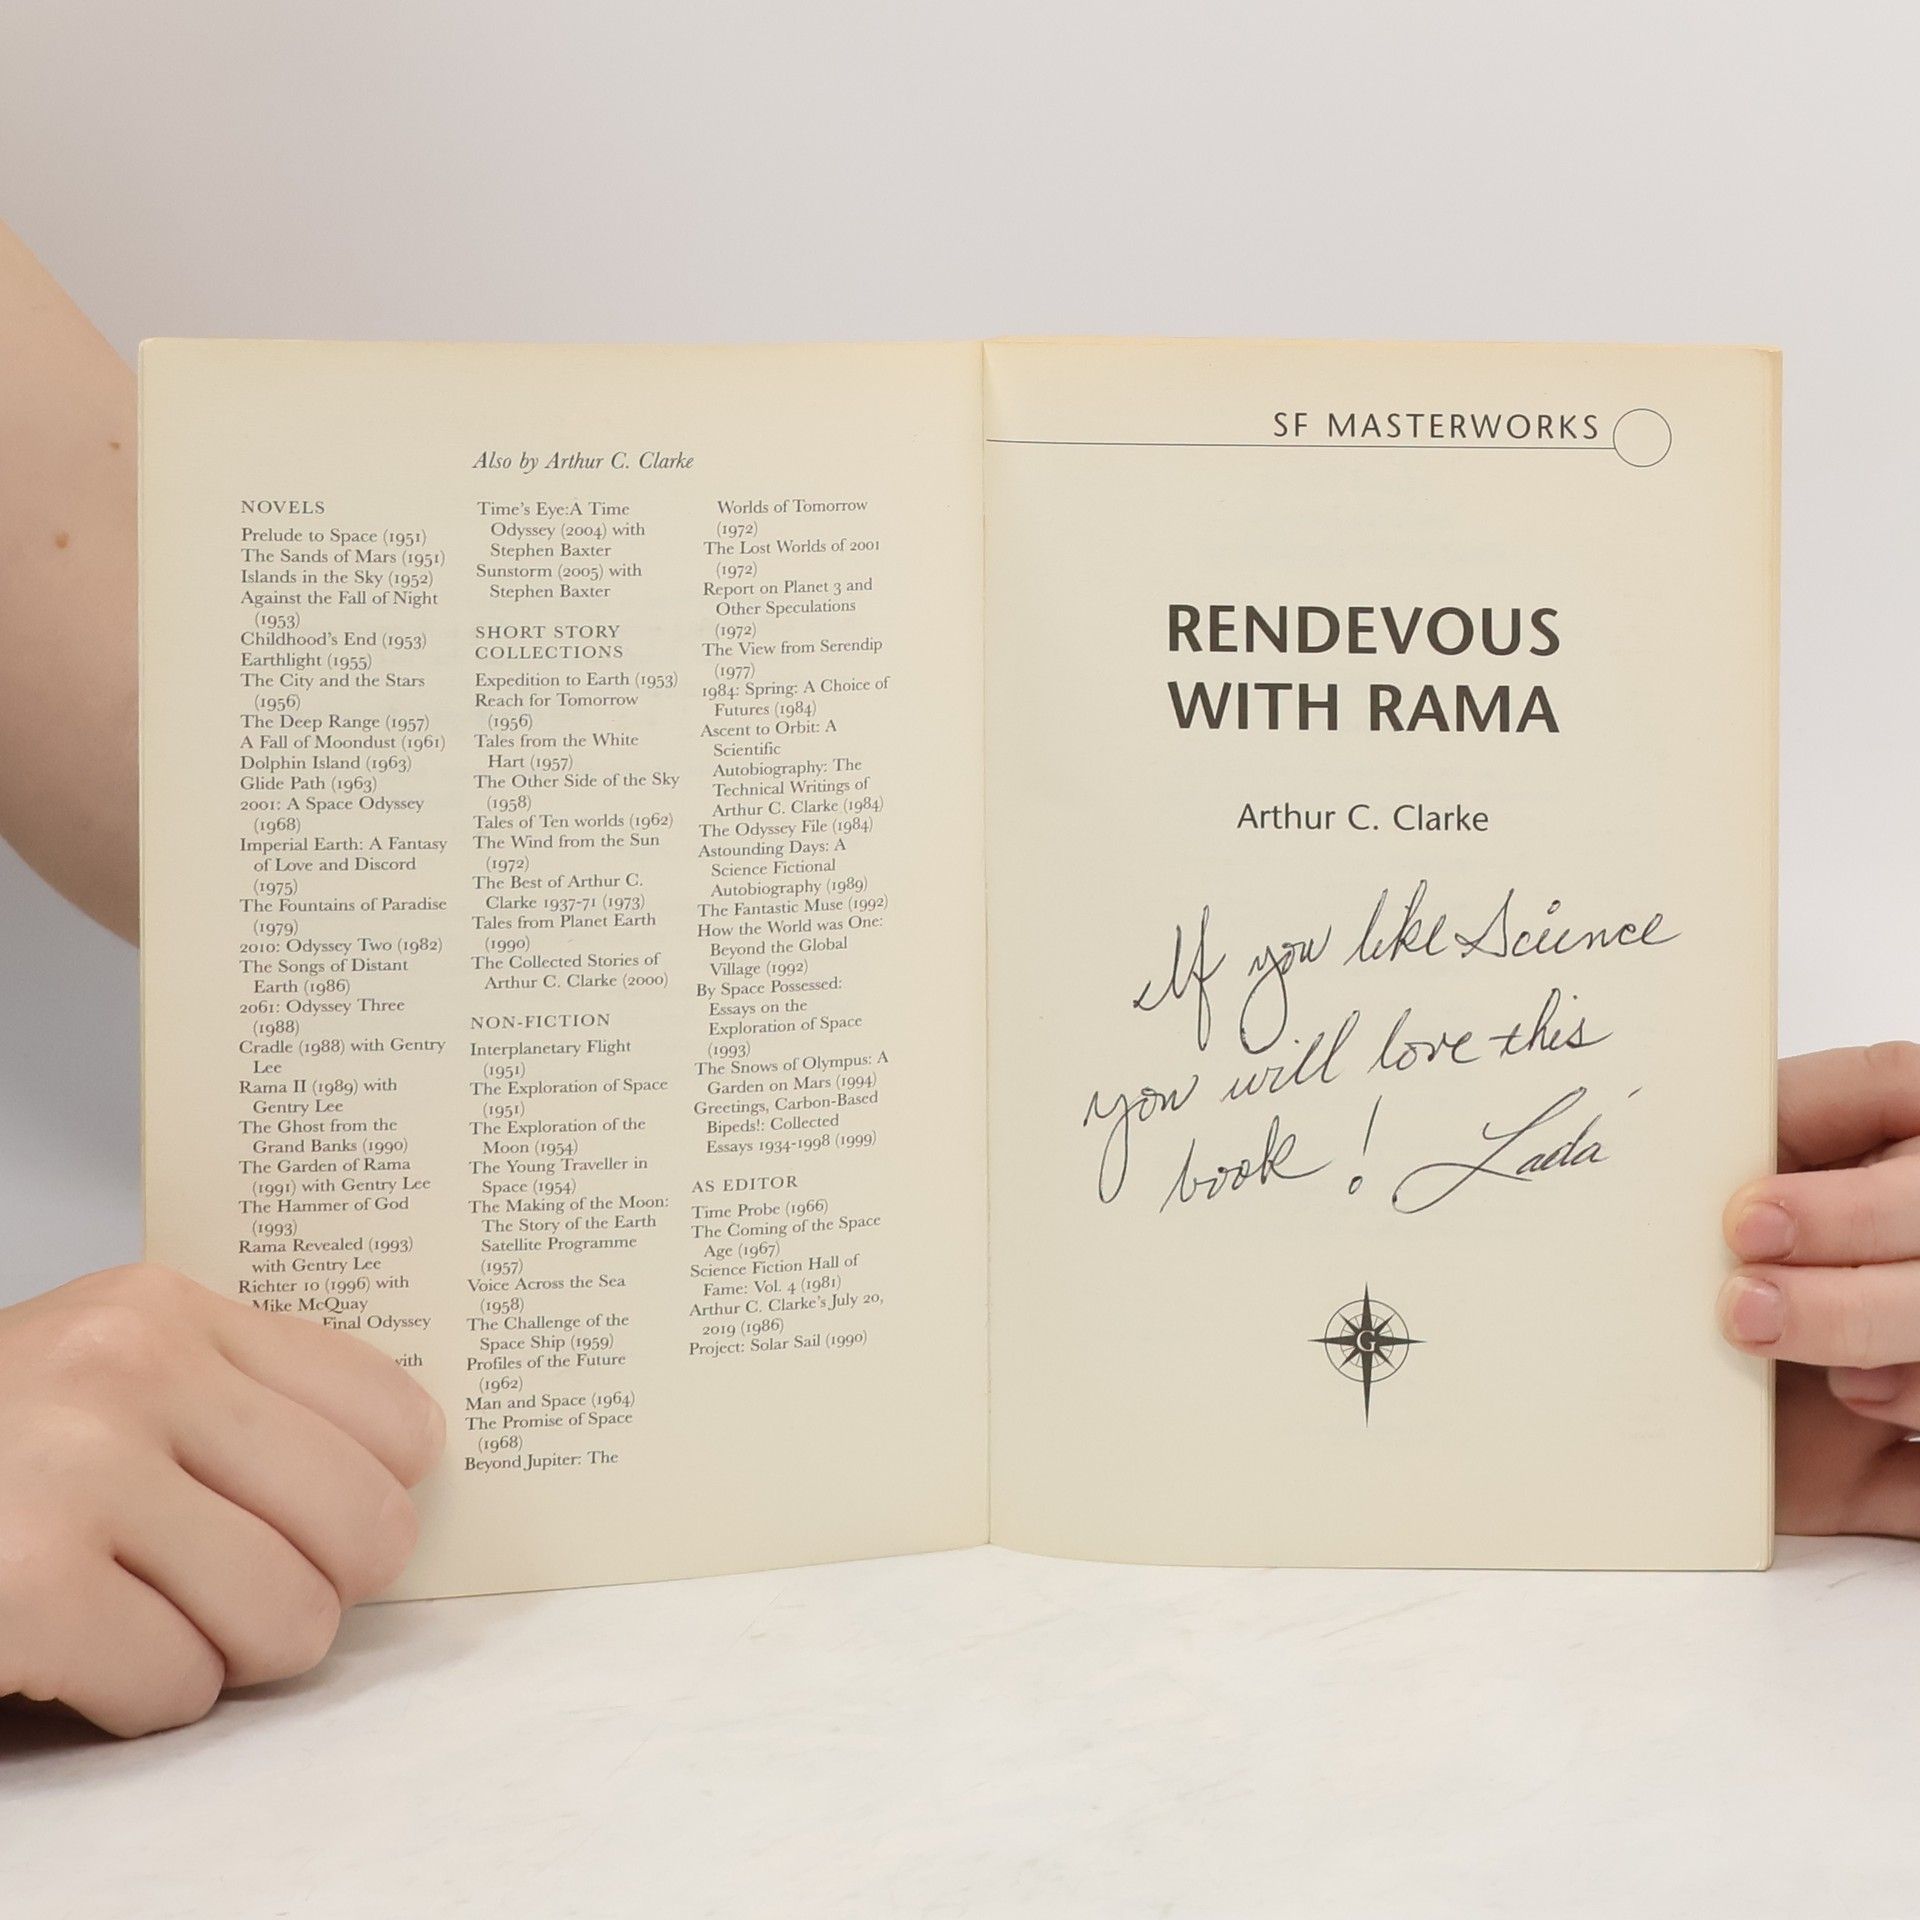 Also by Arthur C. Clarke
NOVELS
Prelude to Space (1951)
The Sands of Mars (1951)
Islands in the Sky (1952)
Against the Fall of Night
(1953)
Childhood's End (1953)
Earthlight (1955)
The City and the Stars
(1956)
The Deep Range (1957)
A Fall of Moondust (1961)
Dolphin Island (1963)
Glide Path (1963)
2001: A Space Odyssey
(1968)
Imperial Earth: A Fantasy
of Love and Discord
(1975)
The Fountains of Paradise
(1979)
2010: Odyssey Two (1982)
The Songs of Distant
Earth (1986)
2061: Odyssey Three
(1988)
Cradle (1988) with Gentry
Lee
Rama II (1989) with
Gentry Lee
The Ghost from the
Grand Banks (1990)
The Garden of Rama
(1991) with Gentry Lee
The Hammer of God
(1993)
Rama Revealed (1993)
with Gentry Lee
Richter 10 (1996) with
Mike McQuay
Final Odyssey
with
Time's Eye:A Time
Odyssey (2004) with
Stephen Baxter
Sunstorm (2005) with
Stephen Baxter
SHORT STORY
COLLECTIONS
Expedition to Earth (1953)
Reach for Tomorrow
(1956)
Tales from the White
Hart (1957)
The Other Side of the Sky
(1958)
Tales of Ten worlds (1962)
The Wind from the Sun
(1972)
The Best of Arthur C.
Clarke 1937-71 (1973)
Tales from Planet Earth
(1990)
The Collected Stories of
Arthur C. Clarke (2000)
NON-FICTION
Interplanetary Flight
(1951)
The Exploration of Space
(1951)
The Exploration of the
Moon (1954)
The Young Traveller in
Space (1954)
The Making of the Moon:
The Story of the Earth
Satellite Programme
(1957)
Voice Across the Sea
(1958)
The Challenge of the
Space Ship (1959)
Profiles of the Future
(1962)
Man and Space (1964)
The Promise of Space
(1968)
Beyond Jupiter: The
Worlds of Tomorrow
(1972)
The Lost Worlds of 2001
(1972)
Report on Planet 3 and
Other Speculations
(1972)
The View from Serendip
(1977)
1984: Spring: A Choice of
Futures (1984)
Ascent to Orbit: A
Scientific
Autobiography: The
Technical Writings of
Arthur C. Clarke (1984)
The Odyssey File (1984)
Astounding Days: A
Science Fictional
Autobiography (1989)
The Fantastic Muse (1992)
How the World was One:
Beyond the Global
Village (1992)
By Space Possessed:
Essays on the
Exploration of Space
(1993)
The Snows of Olympus: A
Garden on Mars (1994)
Greetings, Carbon-Based
Bipeds!: Collected
Essays 1934-1998 (1999)
AS EDITOR
Time Probe (1966)
The Coming of the Space
Age (1967)
Science Fiction Hall of
Fame: Vol. 4 (1981)
Arthur C. Clarke's July 20,
2019 (1986)
Project: Solar Sail (1990)
SF MASTERWORKS
RENDEVOUS
WITH RAMA
Arthur C. Clarke
If you like Science
you will love this
book! Lada
G